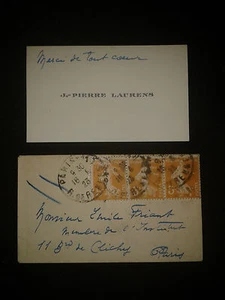 Merci de tout coeur
Jn-PIERRE LAURENS
Monsieur Emile Friant
Membre de l'Institut
11 Bd de Clichy
Paris